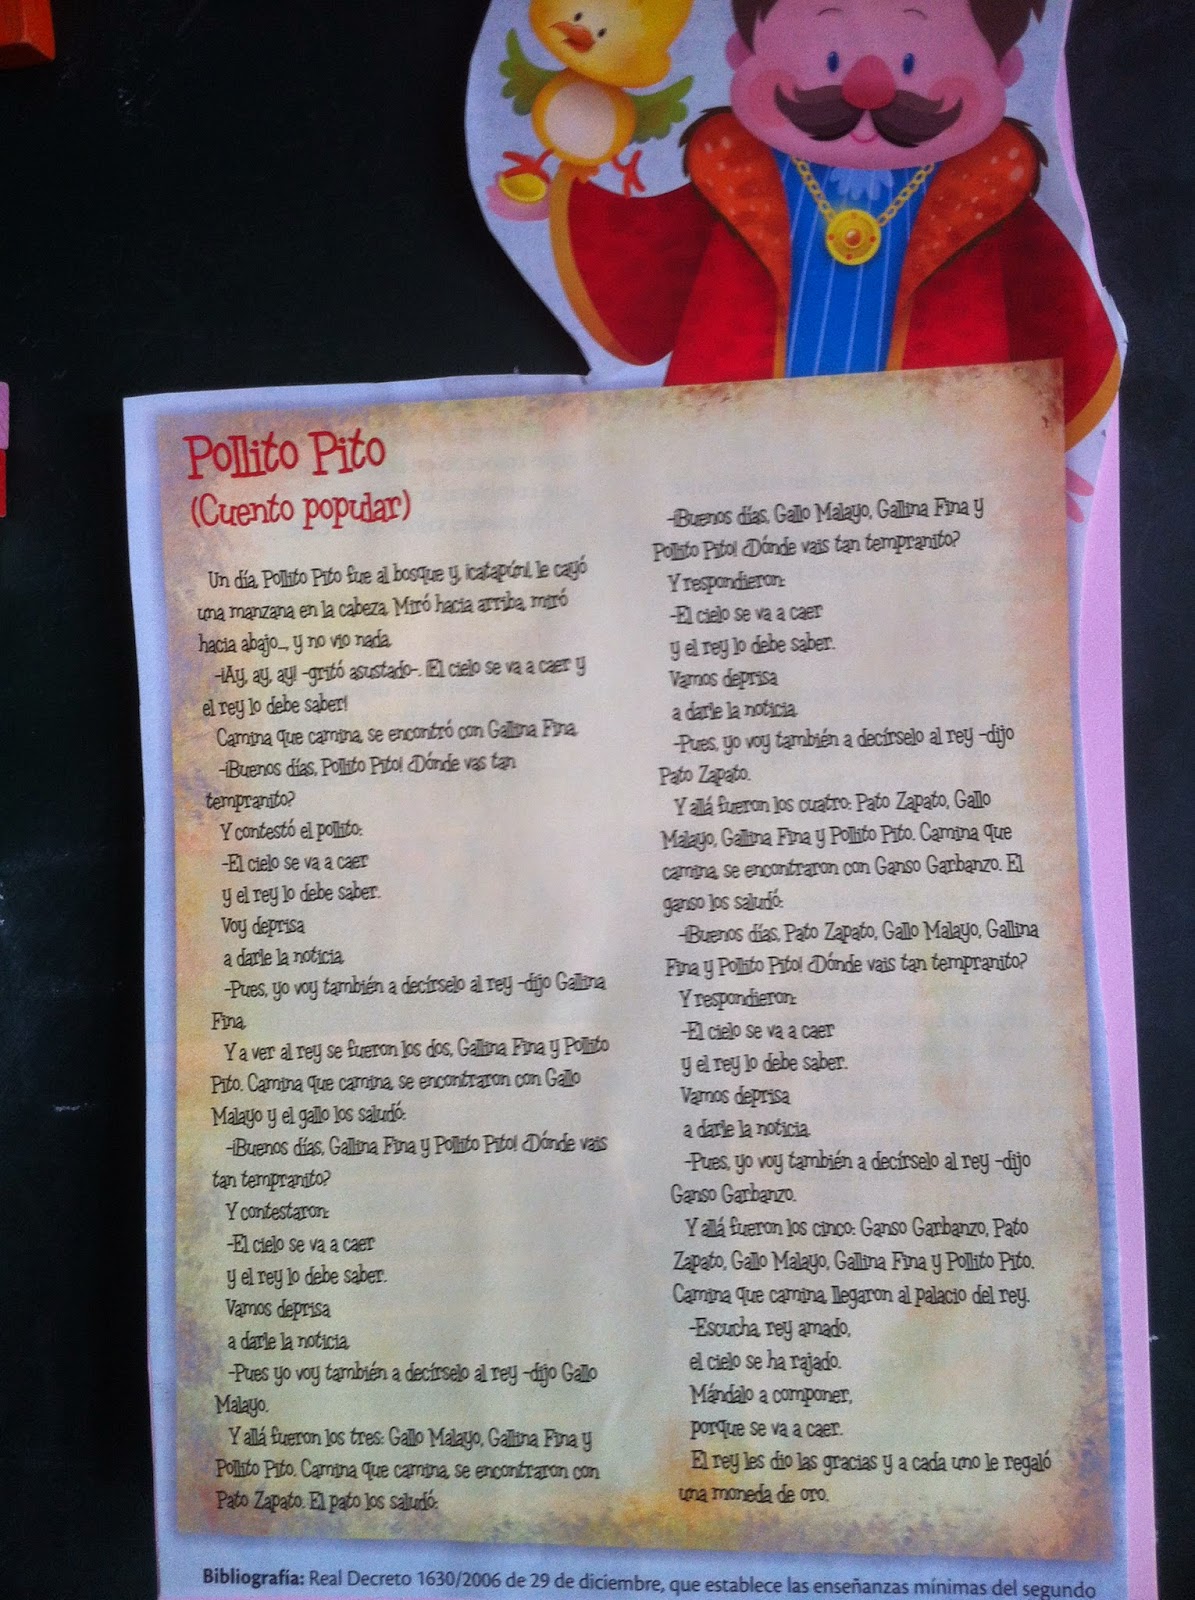 Pollito Pito
(Cuento popular)
Un día, Pollito Pito fue al bosque y, ¡catapún!, le cayó
una manzana en la cabeza. Miró hacia arriba, miró
hacia abajo..., y no vio nada.
-¡Ay, ay, ay! -gritó asustado-. ¡El cielo se va a caer y
el rey lo debe saber!
Camina que camina, se encontró con Gallina Fina.
-¡Buenos días, Pollito Pito! ¿Dónde vas tan
tempranito?
Y contestó el pollito:
-El cielo se va a caer
y el rey lo debe saber.
Voy deprisa
a darle la noticia.
-Pues, yo voy también a decírselo al rey -dijo Gallina
Fina.
Y a ver al rey se fueron los dos, Gallina Fina y Pollito
Pito. Camina que camina, se encontraron con Gallo
Malayo y el gallo los saludó:
-¡Buenos días, Gallina Fina y Pollito Pito! ¿Dónde vais
tan tempranito?
Y contestaron:
-El cielo se va a caer
y el rey lo debe saber.
Vamos deprisa
a darle la noticia.
-Pues yo voy también a decírselo al rey -dijo Gallo
Malayo.
Y allá fueron los tres: Gallo Malayo, Gallina Fina y
Pollito Pito. Camina que camina, se encontraron con
Pato Zapato. El pato los saludó:
-¡Buenos días, Gallo Malayo, Gallina Fina y
Pollito Pito! ¿Dónde vais tan tempranito?
Y respondieron:
-El cielo se va a caer
y el rey lo debe saber.
Vamos deprisa
a darle la noticia.
-Pues, yo voy también a decírselo al rey -dijo
Pato Zapato.
Y allá fueron los cuatro: Pato Zapato, Gallo
Malayo, Gallina Fina y Pollito Pito. Camina que
camina, se encontraron con Ganso Garbanzo. El
ganso los saludó:
-¡Buenos días, Pato Zapato, Gallo Malayo, Gallina
Fina y Pollito Pito! ¿Dónde vais tan tempranito?
Y respondieron:
-El cielo se va a caer
y el rey lo debe saber.
Vamos deprisa
a darle la noticia.
-Pues, yo voy también a decírselo al rey -dijo
Ganso Garbanzo.
Y allá fueron los cinco: Ganso Garbanzo, Pato
Zapato, Gallo Malayo, Gallina Fina y Pollito Pito.
Camina que camina, llegaron al palacio del rey.
-Escucha, rey amado,
el cielo se ha rajado.
Mándalo a componer,
porque se va a caer.
El rey les dio las gracias y a cada uno le regaló
una moneda de oro.
Bibliografía: Real Decreto 1630/2006 de 29 de diciembre, que establece las enseñanzas mínimas del segundo